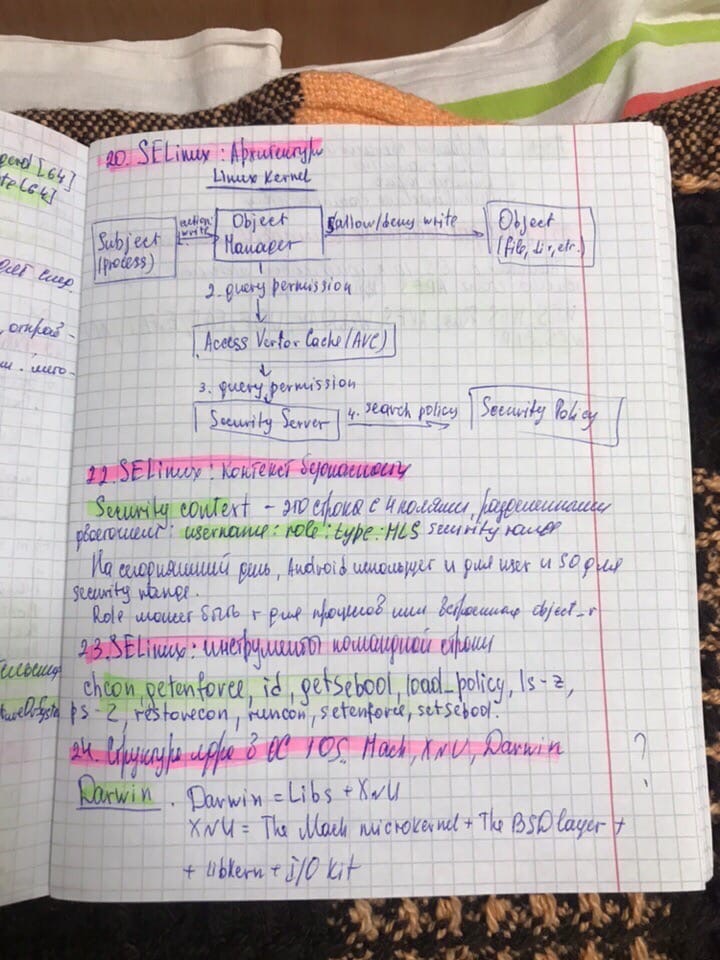 perd [64]
te [64]
20. SELinux : Архитектура
Linux Kernel
Subject (process)
action: write
Object Manager
5 allow/deny write
Object (file, dir, etc.)
2. query permission
Access Vector Cache (AVC)
3. query permission
Security Server
4. search policy
Security Policy
22. SELinux : контекст безопасности
Security context – это строка с 4 полями, разделенными
двоеточием: username : role : type : MLS security range
На сегодняшний день, Android использует u для user и s0 для
security range.
Role может быть r для процессов или встроенная object_r
23. SELinux: инструменты командной строки
chcon, getenforce, id, getsebool, load_policy, ls -z,
ps -z, restorecon, runcon, setenforce, setsebool.
24. Структура ядра в ОС iOS. Mach, XNU, Darwin ?
Darwin. Darwin = Libs + XNU
XNU = The Mach microkernel + The BSD layer +
+ libkern + I/O kit